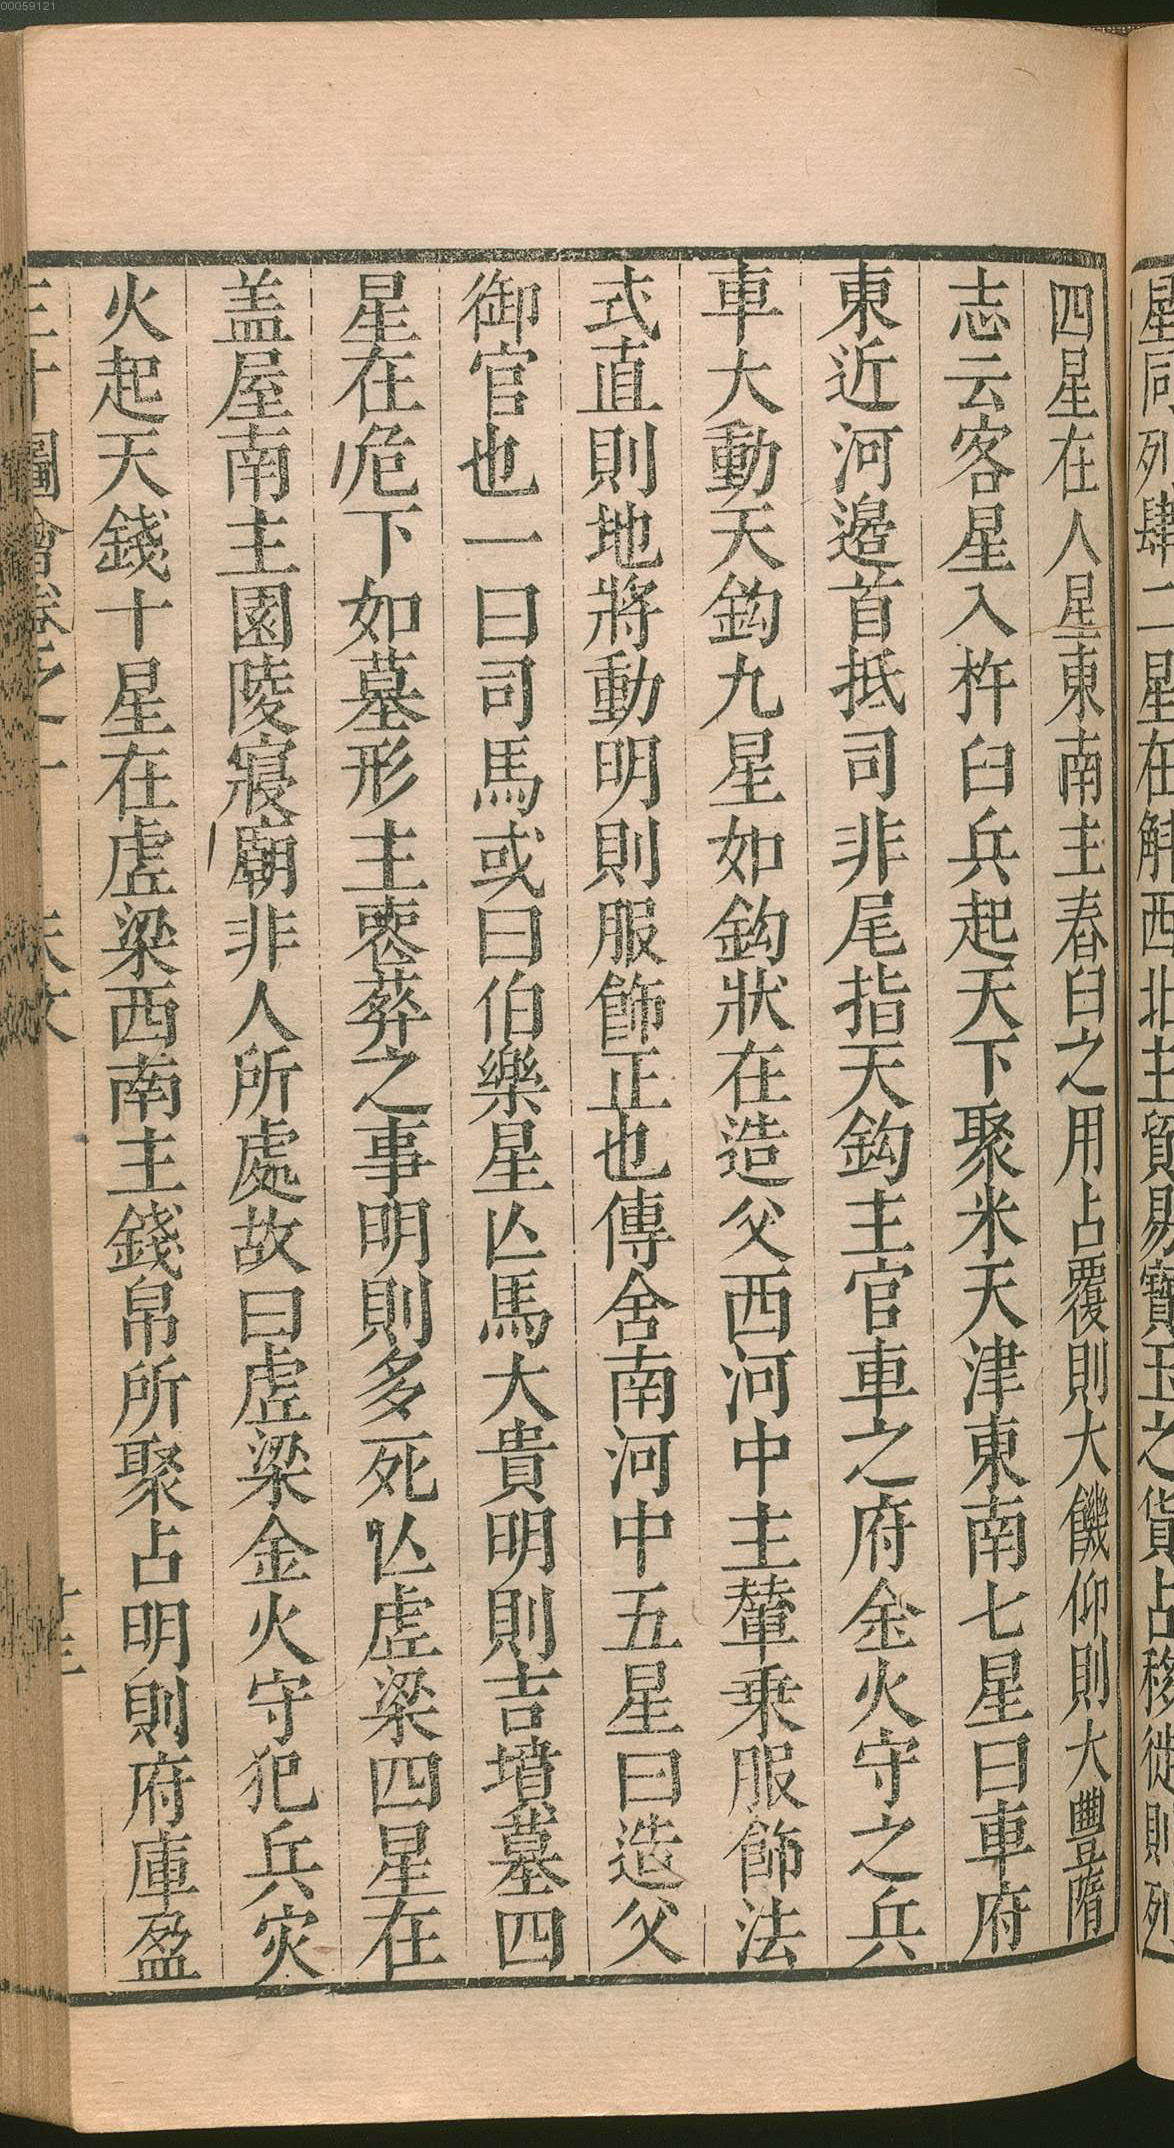 00059121
星同列肆二星在斛西北主貿易寶玉之貨占移徙則列
四星在人星東南主舂臼之用占覆則大饑仰則大豐隋
志云客星入杵臼兵起天下聚米天津東南七星曰車府
東近河邉首抵司非尾指天鈎主官車之府金火守之兵
車大動天鈎九星如鈎狀在造父西河中主輦乗服飾法
式直則地將動明則服飾正也傳舍南河中五星曰造父
御官也一曰司馬或曰伯樂星亾馬大貴明則吉墳墓四
星在危下如墓形主䘮葬之事明則多死亾虛梁四星在
盖屋南主園陵寢廟非人所處故曰虛梁金火守犯兵灾
火起天錢十星在虛梁西南主錢帛所聚占明則府庫盈
三才圖會卷之一 天文